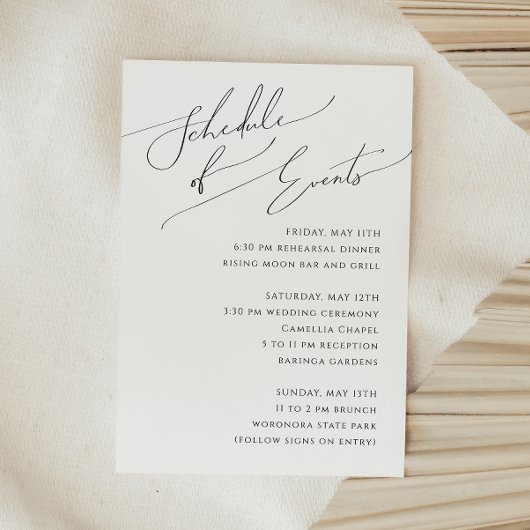 Schedule
of Events
FRIDAY, MAY 11TH
6:30 PM REHEARSAL DINNER
RISING MOON BAR AND GRILL
SATURDAY, MAY 12TH
3:30 PM WEDDING CEREMONY
CAMELLIA CHAPEL
5 TO 11 PM RECEPTION
BARINGA GARDENS
SUNDAY, MAY 13TH
11 TO 2 PM BRUNCH
WORONORA STATE PARK
(FOLLOW SIGNS ON ENTRY)